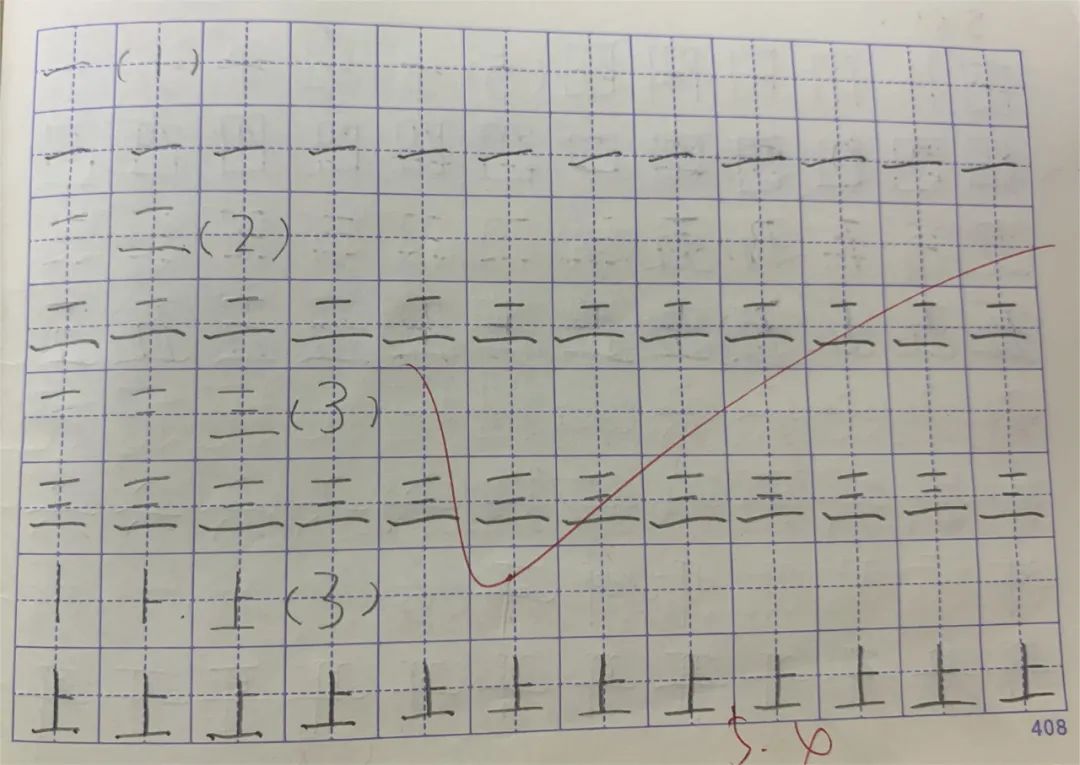 一 (1)
一 一 一 一 一 一 一 一 一 一 一 一
一 二 (2)
二 二 二 二 二 二 二 二 二 二 二 二
一 二 三 (3)
三 三 三 三 三 三 三 三 三 三 三 三
丨 ⺊ 上 (3)
上 上 上 上 上 上 上 上 上 上 上 上
408